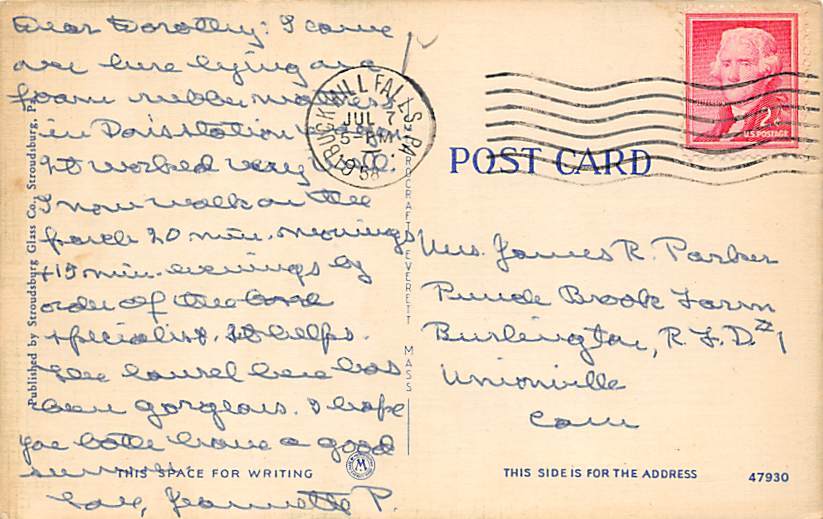 Dear Dorothy: I came
are here lying on a
foam rubber mattress
in Dais station wagon.
It worked very well.
I now walk on the
porch 20 min. mornings
+ 15 min. evenings by
order of the bone
specialist. It helps.
The laurel here has
been gorgeous. I hope
you both have a good
summer
Love, Jeannette P.
THIS SPACE FOR WRITING
Published by Stroudsburg Glass Co., Stroudsburg, Pa.
EVERETT MASS
M
BUCK HILL FALLS, PA.
JUL 7
5-PM
1958
2¢
U.S. POSTAGE
POST CARD
Mrs. James R. Parker
Punde Brook Farm
Burlington, R.F.D. #1
Unionville
Conn
THIS SIDE IS FOR THE ADDRESS
47930